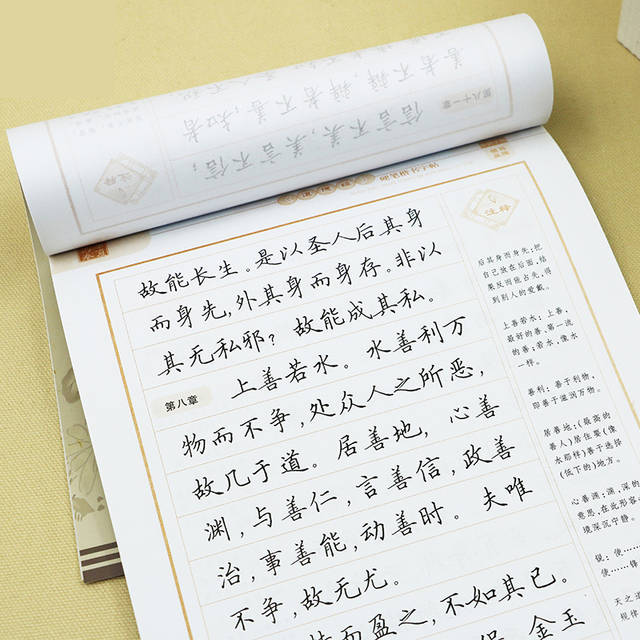 硬笔楷书字帖
故能长生。是以圣人后其身
而身先，外其身而身存。非以
其无私邪？故能成其私。
第八章
上善若水。水善利万
物而不争，处众人之所恶，
故几于道。居善地，心善
渊，与善仁，言善信，政善
治，事善能，动善时。夫唯
不争，故无尤。
而盈之，不如其已。
金玉
注释
后其身而身先：把
自己放在后面，结
果反而能占先，得
到别人的爱戴。
上善若水：上善，
最好的善，第一流
的善；若水，像水
一样。
善利：善于利物，
即善于滋润万物。
居善地：（最高的
善人）居住要（像
水那样）善于选择
（低下的）地方。
心善渊：渊，深的
意思，在此形容
境深沉宁静。
锐：使
使……锋
天之道
规律
第八十一章
信言不美，美言不信；
善者不辩，辩者不善；知者
注释